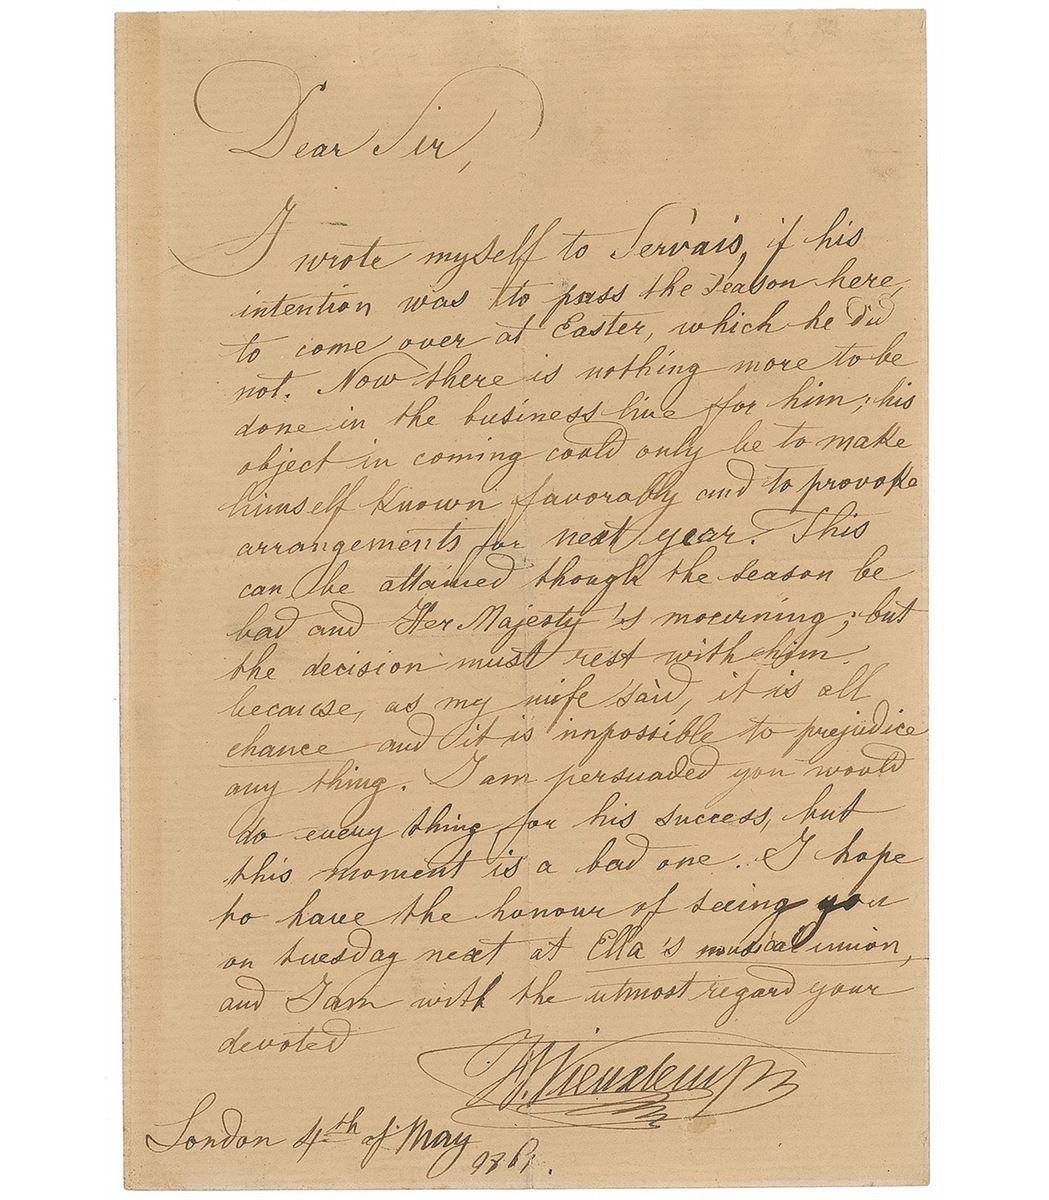 Dear Sir,
I wrote myself to Servais, if his
intention was to pass the season here,
to come over at Easter, which he did
not. Now there is nothing more to be
done in the business line for him; his
object in coming could only be to make
himself known favorably and to provoke
arrangements for next year. This
can be attained though the season be
bad and Her Majesty's mourning; but
the decision must rest with him.
because, as my wife said, it is all
chance and it is impossible to prejudice
any thing. I am persuaded you would
do every thing for his success, but
this moment is a bad one. I hope
to have the honour of seeing you
on tuesday next at Ella's musical union,
and I am with the utmost regard your
devoted
H. Vieuxtemps
London 4th of May
1861.